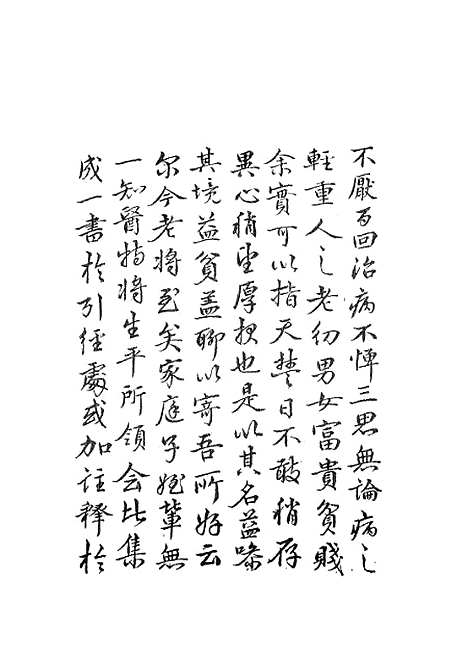 不厭百回治病不憚三思無論病之
輕重人之老幼男女富貴貧賤
余實可以指天誓日不敢稍存
異心稍望厚報也是以其名益噪
其境益貧盖聊以寄吾所好云
尔今老將至矣家庭子姪輩無
一知醫特將生平所領会比集
成一書於引經處或加註釋於